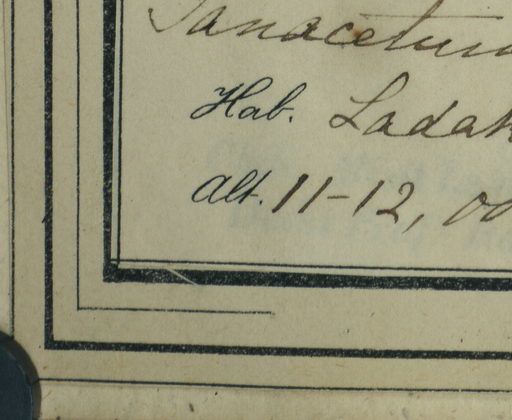 Tanacetum
Hab. Ladak
Alt. 11-12, 00